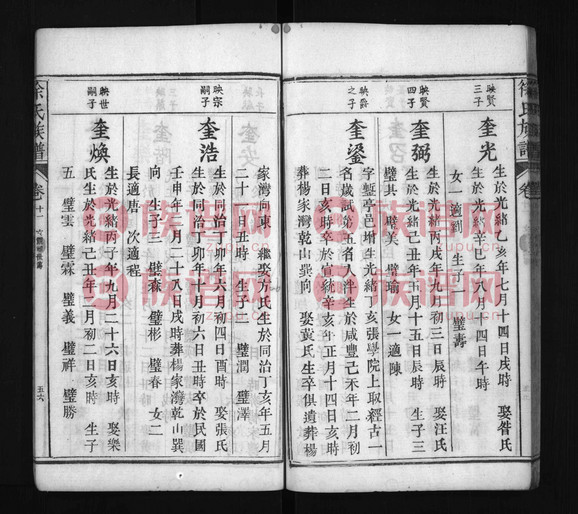 徐氏族譜
卷
映賢三子
奎光
生於光緒乙亥年七月十四日戌時 娶昝氏
生於光緒辛巳年八月十四日午時
女一適劉 生子一 璧壽
映賢四子
奎弼
生於光緒丙戌年九月初三日辰時 娶汪氏
生於光緒己丑年五月十五日辰時 生子三
璧其 璧美 璧瑜 女一適陳
映爵之子
奎鋆
字鋻亭邑增生光緒丁亥張學院上取經古一
名歲試第五名入泮生於咸豐己未年二月初
二日亥時卒於宣統辛亥年正月十四日亥時
葬楊家灣乾山巽向 娶冀氏生卒俱遺葬楊
家灣向東 繼娶方氏生於同治丁亥年五月
二十一日丑時 生子二 璧潤 璧澤
映宗嗣子
奎浩
生於同治丁卯年六月初四日酉時 娶張氏
生於同治丁卯年十月初六日丑時卒於民國
壬申年八月二十八日戌時葬楊家灣乾山巽
向 生子三 璧森 璧彬 璧春 女二
長適唐 次適程
映世嗣子
奎煥
生於光緒丙子年九月二十六日亥時 娶樂
氏生於光緒己丑年二月初二日亥時 生子
五 璧雲 璧霖 璧義 璧祥 璧勝
徐氏族譜
卷十一
五六
族谱网
zupu.cn